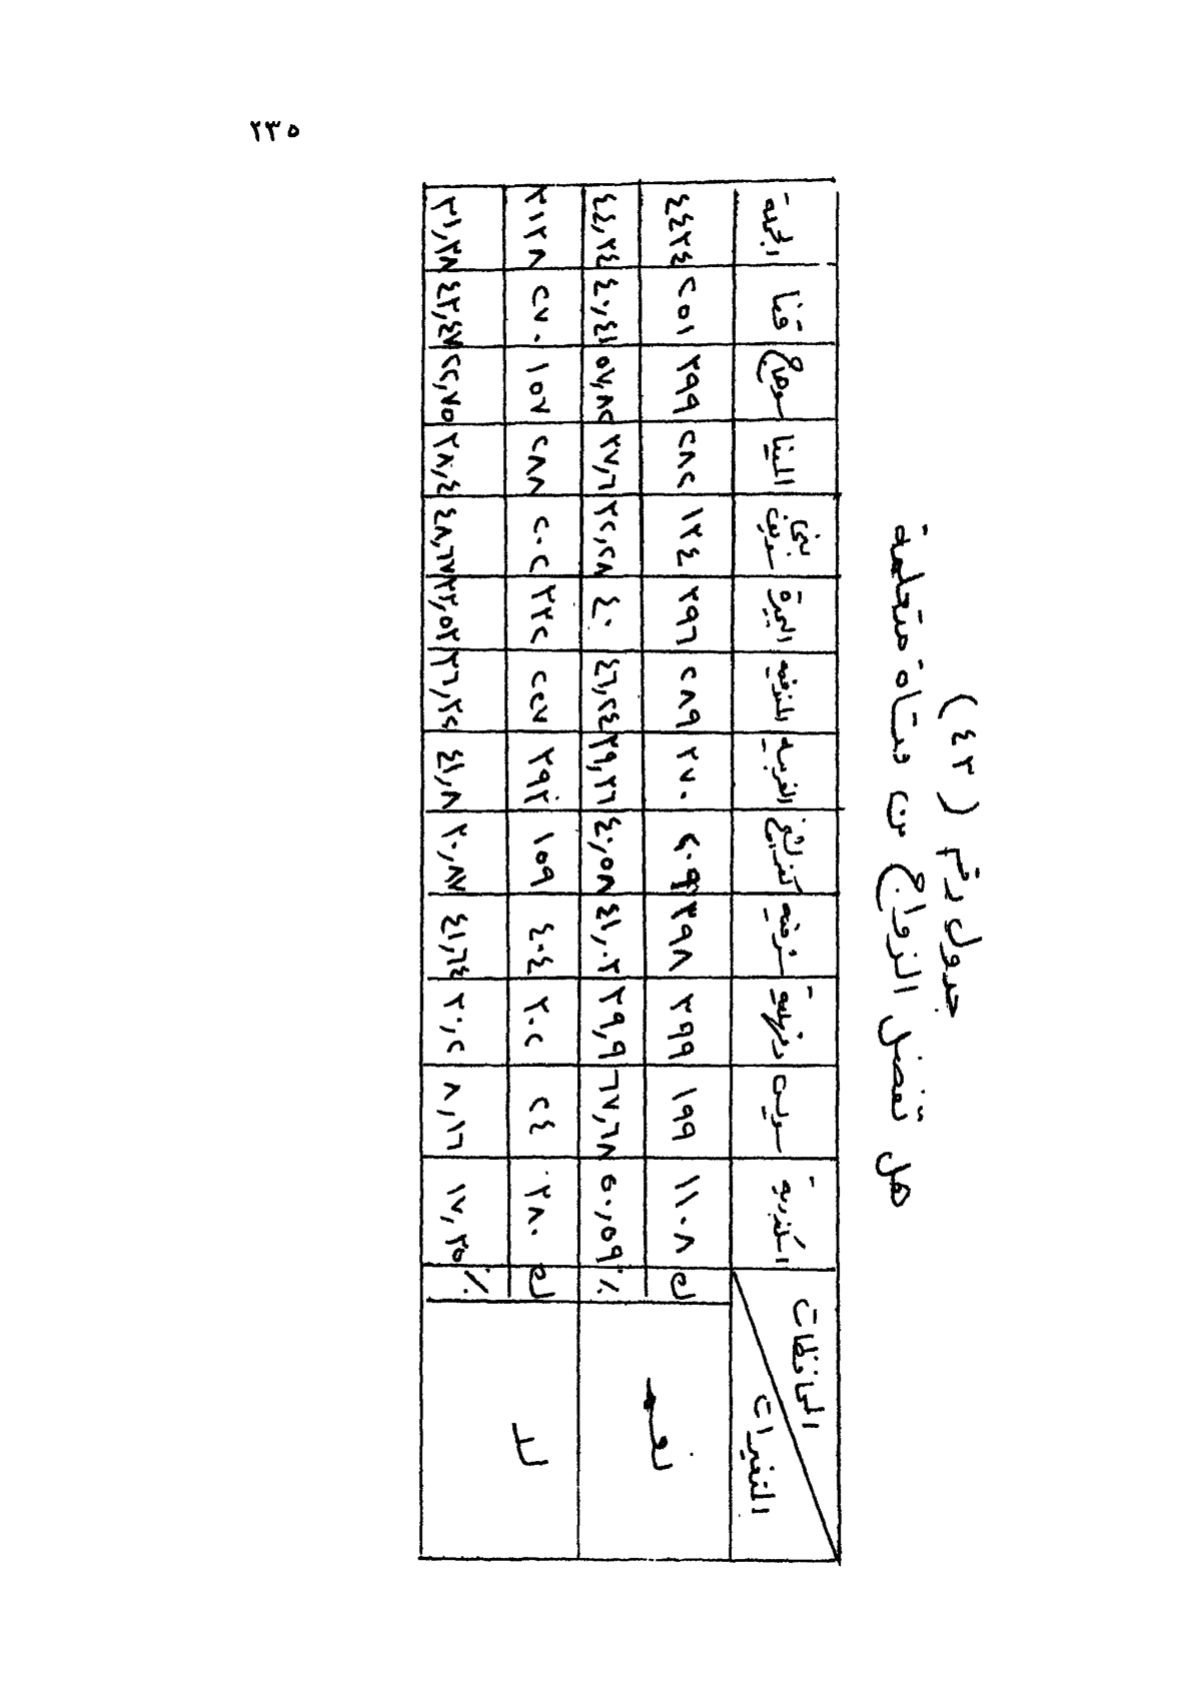 ٢٣٥
جدول رقم (٤٣)
هل تفضل الزواج من فتاة متعلمة
المحافظات المتغيرات اسكندرية سويس دقهلية شرقيه كفر الشيخ الغربيه المنوفيه الجيزة بنى سويف المنيا سوهاج قنا الجملة
نعم ك ١١٠٨ ١٩٩ ٣٩٩ ٣٩٨ ٢٠٩ ٣٧٠ ٢٨٩ ٣٩٦ ١٣٤ ٢٨٢ ٣٩٩ ٢٥١ ٤٤٣٤
٪ ٥٠,٥٩ ٦٧,٦٨ ٣٩,٩ ٤١,٠٣ ٤٠,٥٨ ٣٩,٣٦ ٤٦,٢٤ ٤٠ ٣٢,٢٨ ٣٧,٦ ٥٧,٨٢ ٤٠,٤١ ٤٤,٣٤
لا ك ٣٨٠ ٢٤ ٣٠٢ ٤٠٤ ١٥٩ ٣٩٣ ٢٢٧ ٣٣٢ ٢٠٢ ٢٨٨ ١٥٧ ٢٧٠ ٣١٣٨
٪ ١٧,٣٥ ٨,١٦ ٣٠,٢ ٤١,٦٤ ٣٠,٨٧ ٤١,٨ ٣٦,٣٢ ٣٣,٥٣ ٤٨,٦٧ ٣٨,٤ ٢٢,٧٥ ٤٣,٤٧ ٣١,٣٨